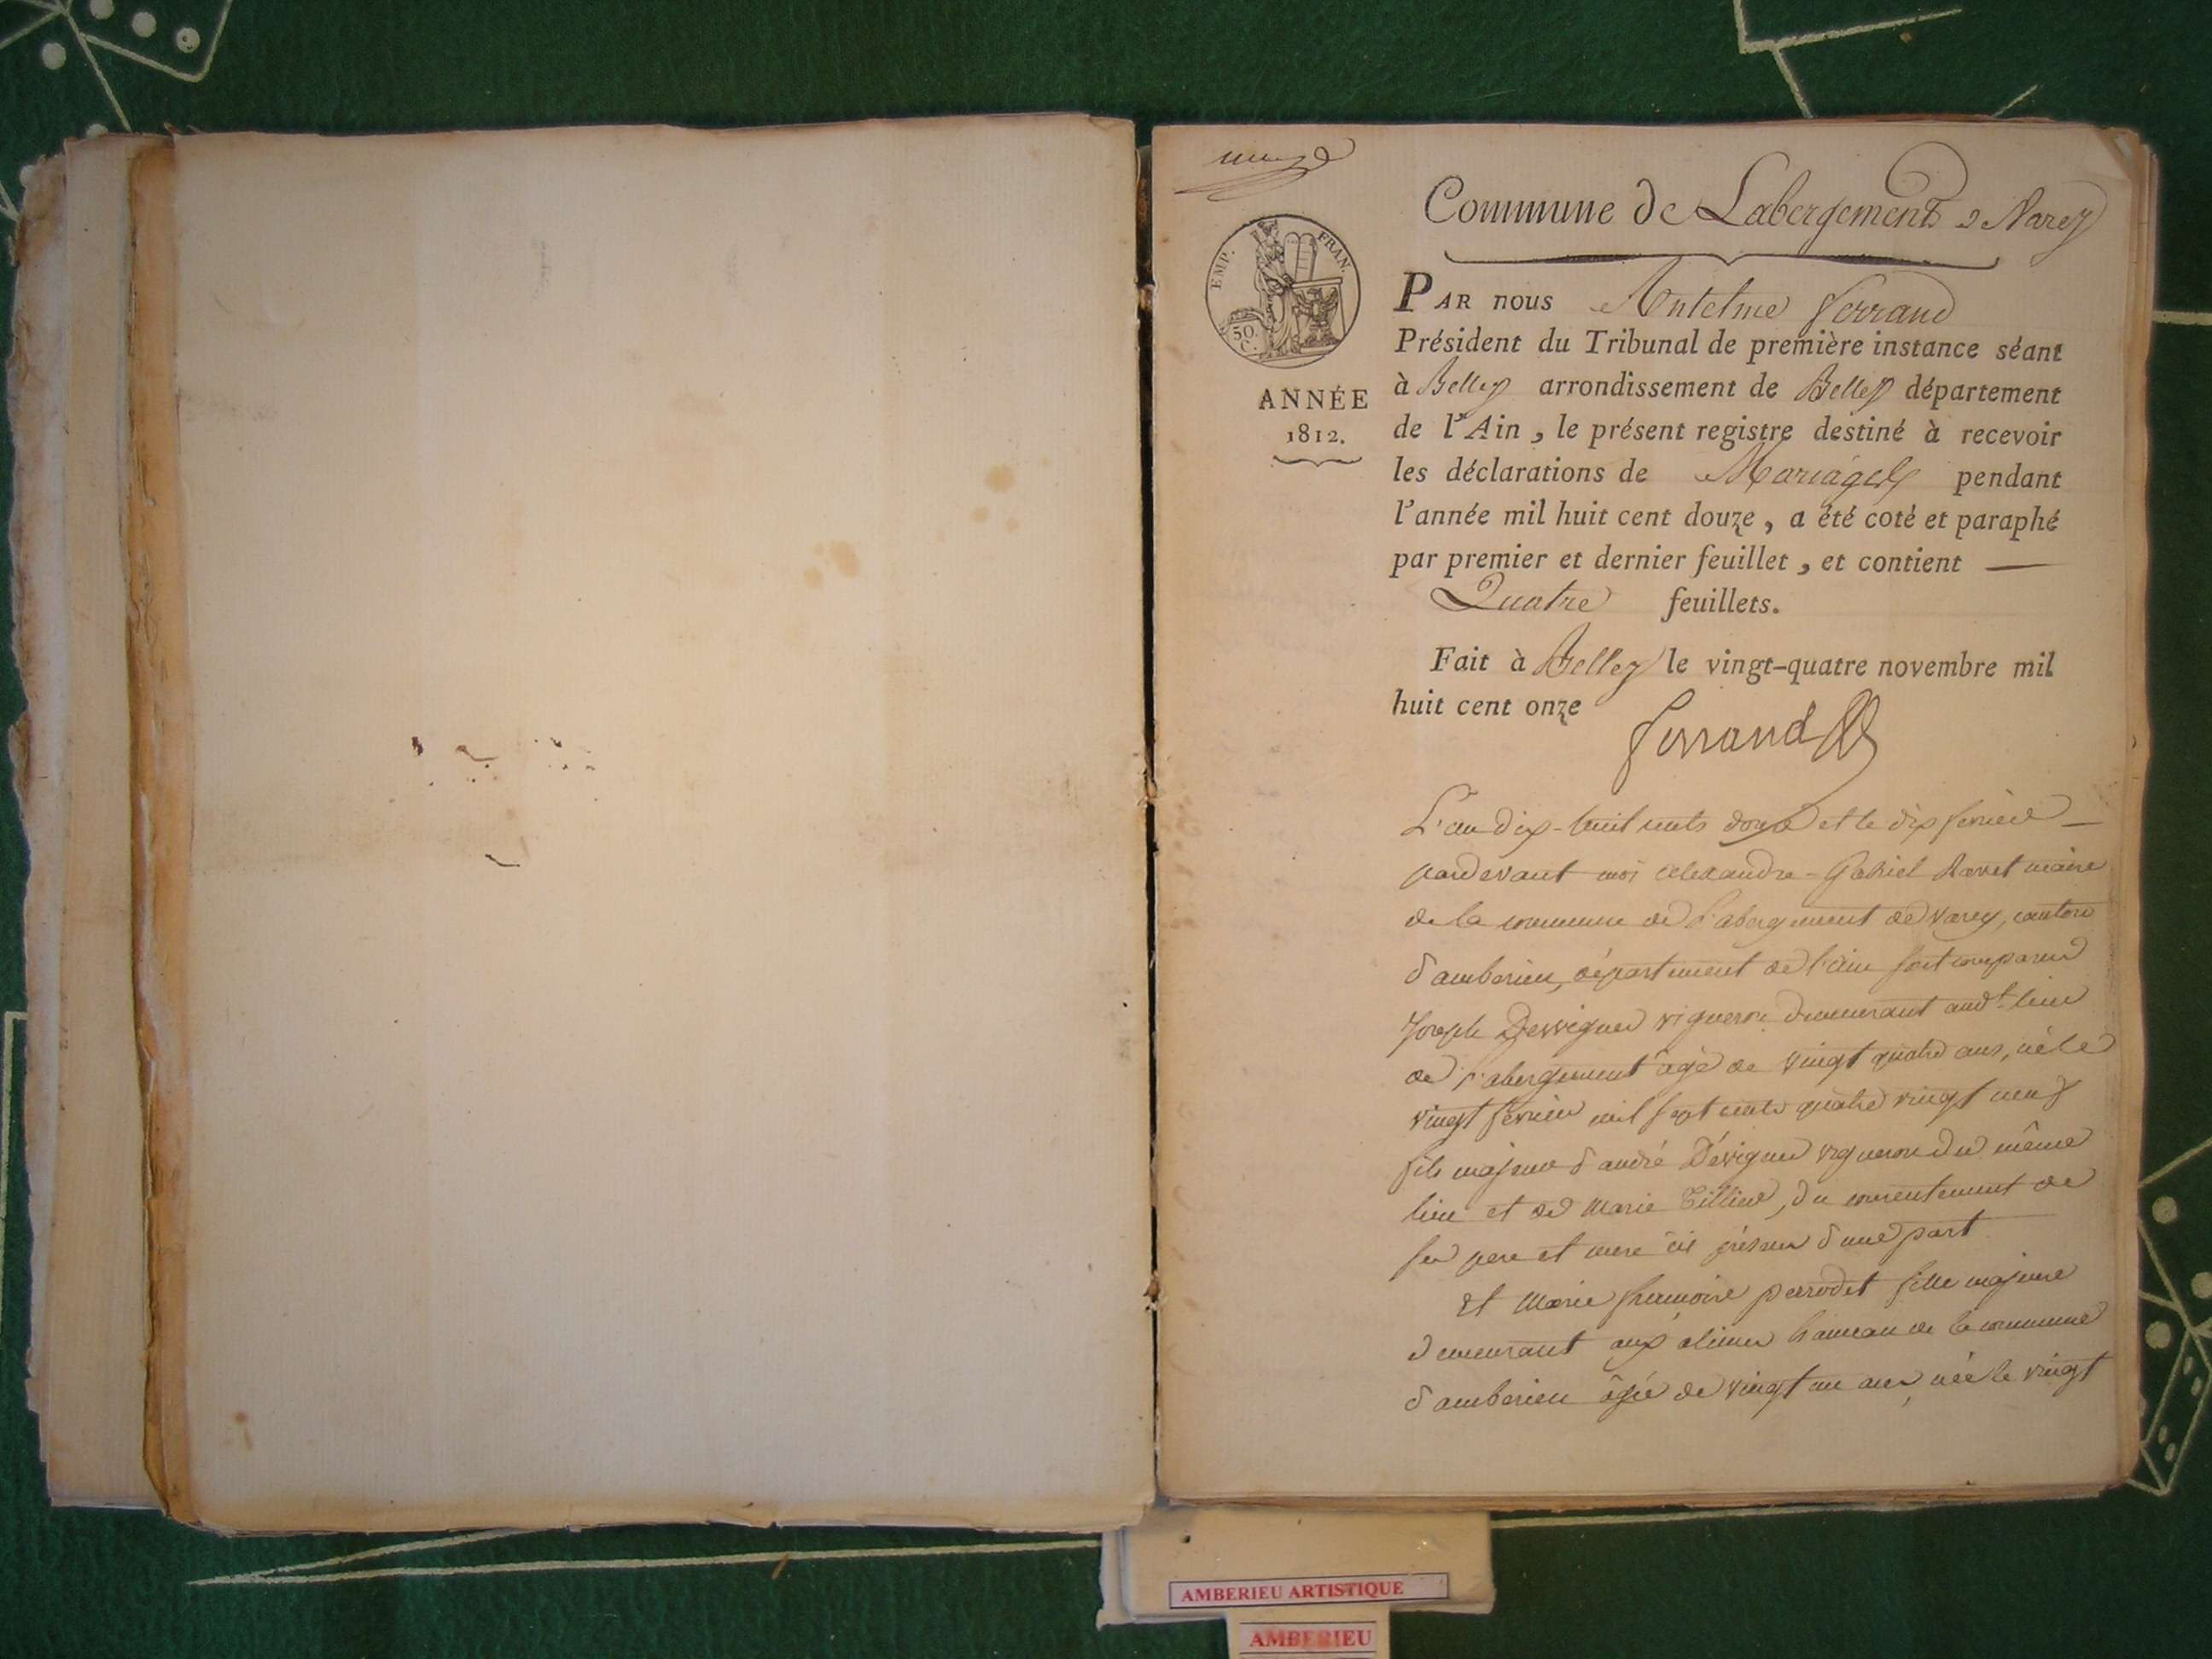 Commune de Labergement de Varey
EMP. FRAN.
50 C.
PAR nous Antelme Ferrand
Président du Tribunal de première instance séant
à Belley arrondissement de Belley département
ANNÉE
1812.
de l'Ain, le présent registre destiné à recevoir
les déclarations de Mariages pendant
l'année mil huit cent douze, a été coté et paraphé
par premier et dernier feuillet, et contient —
Quatre feuillets.
Fait à Belley le vingt-quatre novembre mil
huit cent onze
Ferrand
L'an dix-huit cents douze et le dix février —
pardevant moi Alexandre-Gabriel maire
de la commune de l'abergement de varey, canton
d'amberieu, département de l'ain sont comparus
Joseph Desvignes vigneron demeurant audt lieu
de l'abergement âgé de vingt quatre ans, né le
vingt février mil sept cents quatre vingt
fils majeur d'andré Dévignes vigneron du même
lieu et de Marie Tillier, du consentement de
ses pere et mere ici présens d'une part
et Marie françoise perrodet fille majeure
demeurant aux alimes hameau de la commune
d'amberieu âgée de vingt un ans, née le vingt
AMBERIEU ARTISTIQUE
AMBERIEU